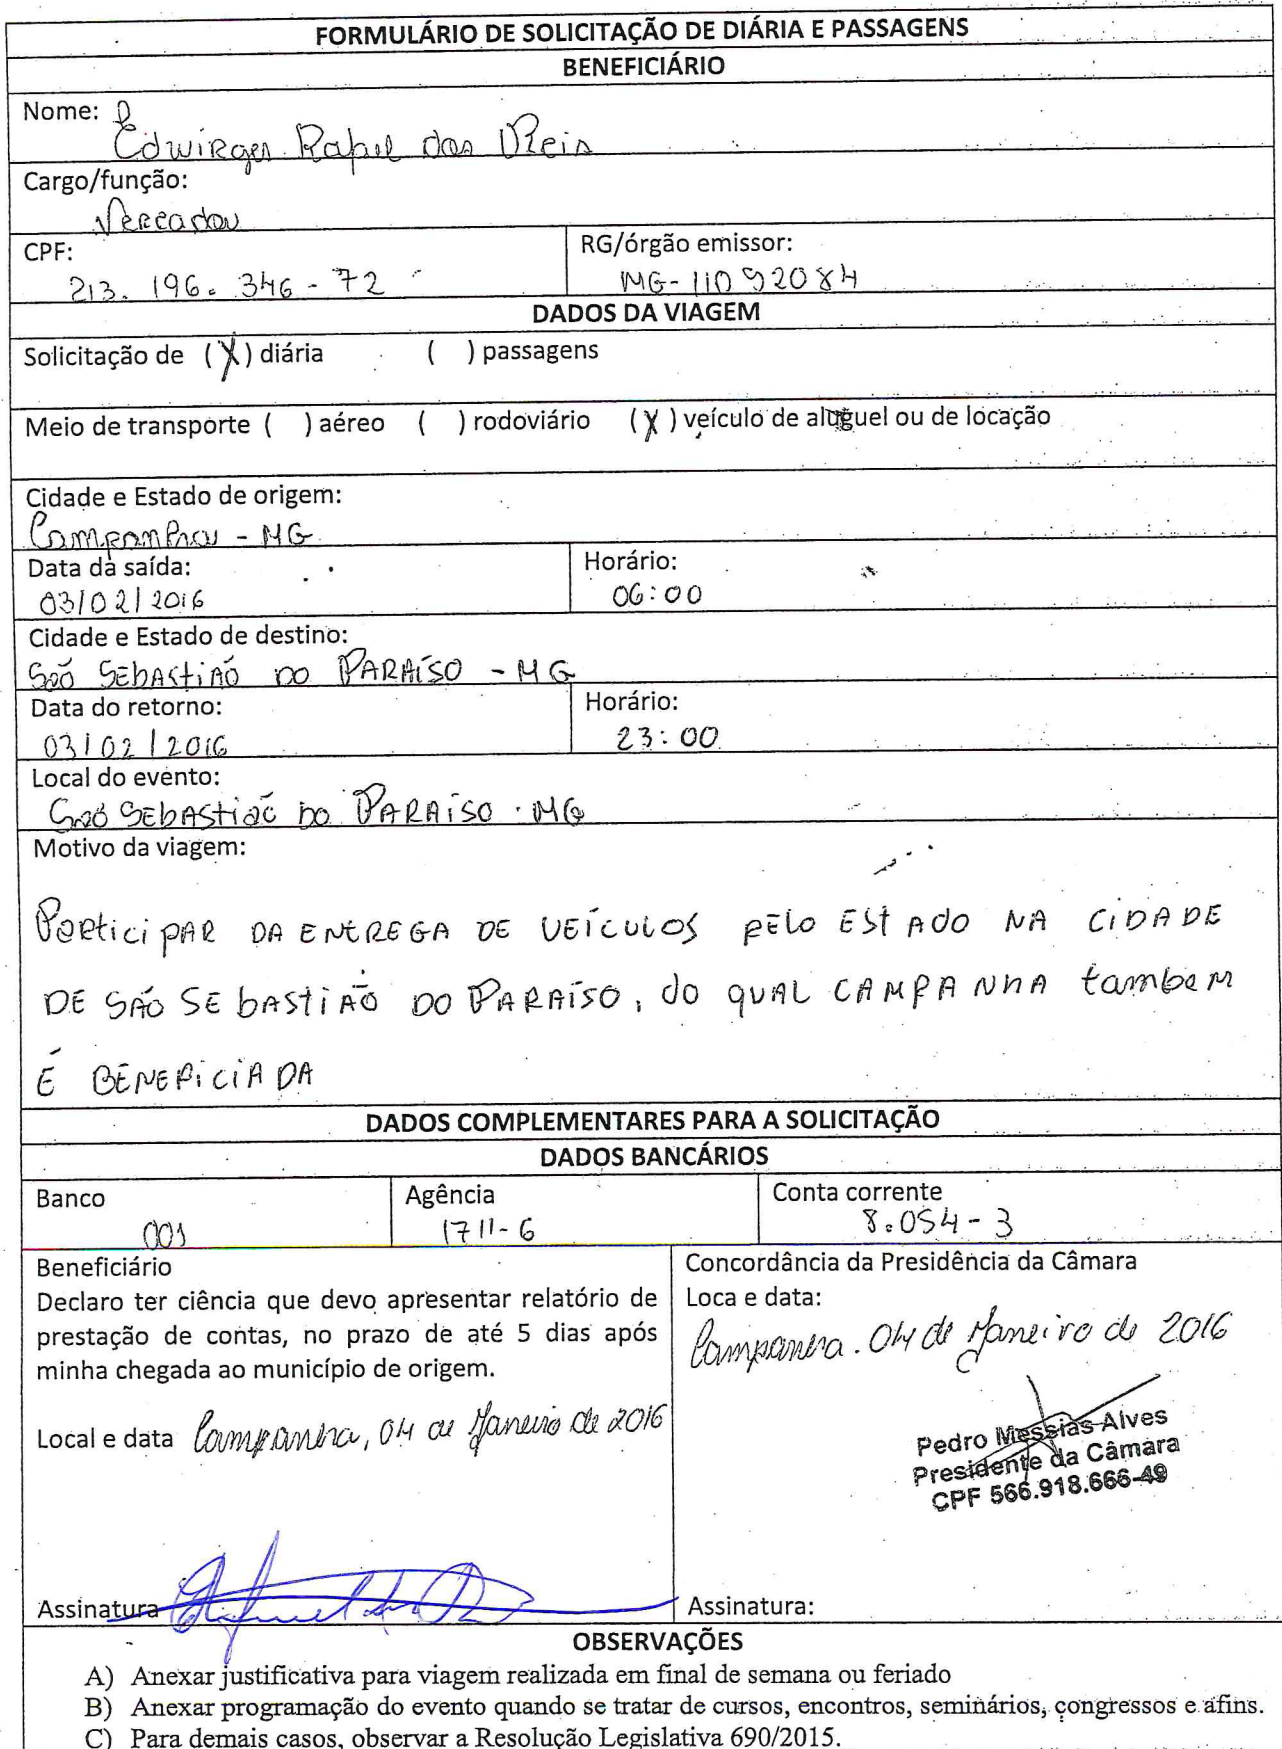 FORMULÁRIO DE SOLICITAÇÃO DE DIÁRIA E PASSAGENS
BENEFICIÁRIO
Nome:
Edwirges Rafael dos Reis
Cargo/função:
Vereador
CPF:
213.196.346-72
RG/órgão emissor:
MG-11092084
DADOS DA VIAGEM
Solicitação de (X) diária ( ) passagens
Meio de transporte ( ) aéreo ( ) rodoviário (X) veículo de aluguel ou de locação
Cidade e Estado de origem:
Campanha - MG
Data da saída:
03/02/2016
Horário:
06:00
Cidade e Estado de destino:
São SEbAStiÃO DO PARAÍSO - MG
Data do retorno:
03/02/2016
Horário:
23:00
Local do evento:
São SEbAStião DO PARAÍSO - MG
Motivo da viagem:
Participar DA ENTREGA DE VEÍCULOS PELO ESTADO NA CIDADE
DE SÃO SEbAStiÃO DO PARAÍSO, do QUAL CAMPANHA tambem
É BENEFICIADA
DADOS COMPLEMENTARES PARA A SOLICITAÇÃO
DADOS BANCÁRIOS
Banco
001
Agência
1711-6
Conta corrente
8.054-3
Beneficiário
Declaro ter ciência que devo apresentar relatório de
prestação de contas, no prazo de até 5 dias após
minha chegada ao município de origem.
Local e data Campanha, 04 de Janeiro de 2016
Assinatura
Concordância da Presidência da Câmara
Loca e data:
Campanha. 04 de Janeiro de 2016
Pedro Messias Alves
Presidente da Câmara
CPF 566.918.666-49
Assinatura:
OBSERVAÇÕES
A) Anexar justificativa para viagem realizada em final de semana ou feriado
B) Anexar programação do evento quando se tratar de cursos, encontros, seminários, congressos e afins.
C) Para demais casos, observar a Resolução Legislativa 690/2015.